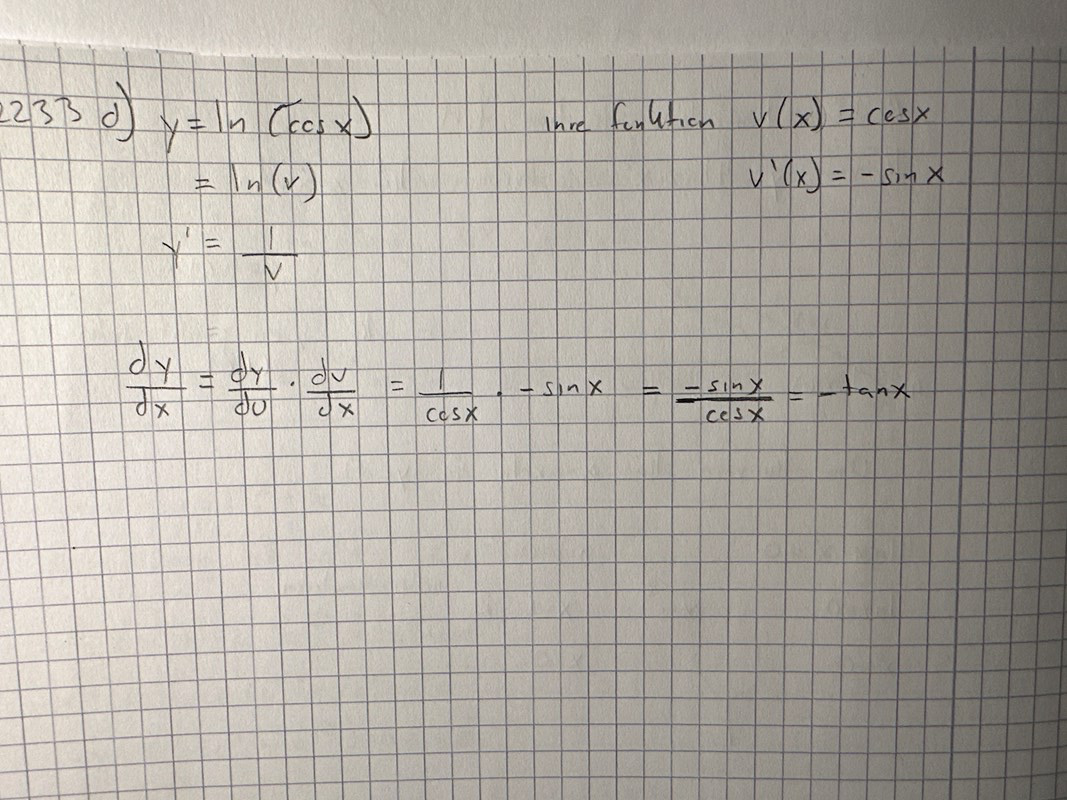 2233 d) y = ln (cos x) inre funktion v(x) = cosx
= ln(v) v'(x) = - sin x
y' = 1/v
dy/dx = dy/du · du/dx = 1/cosx · - sinx = -sinx/cosx = - tanx